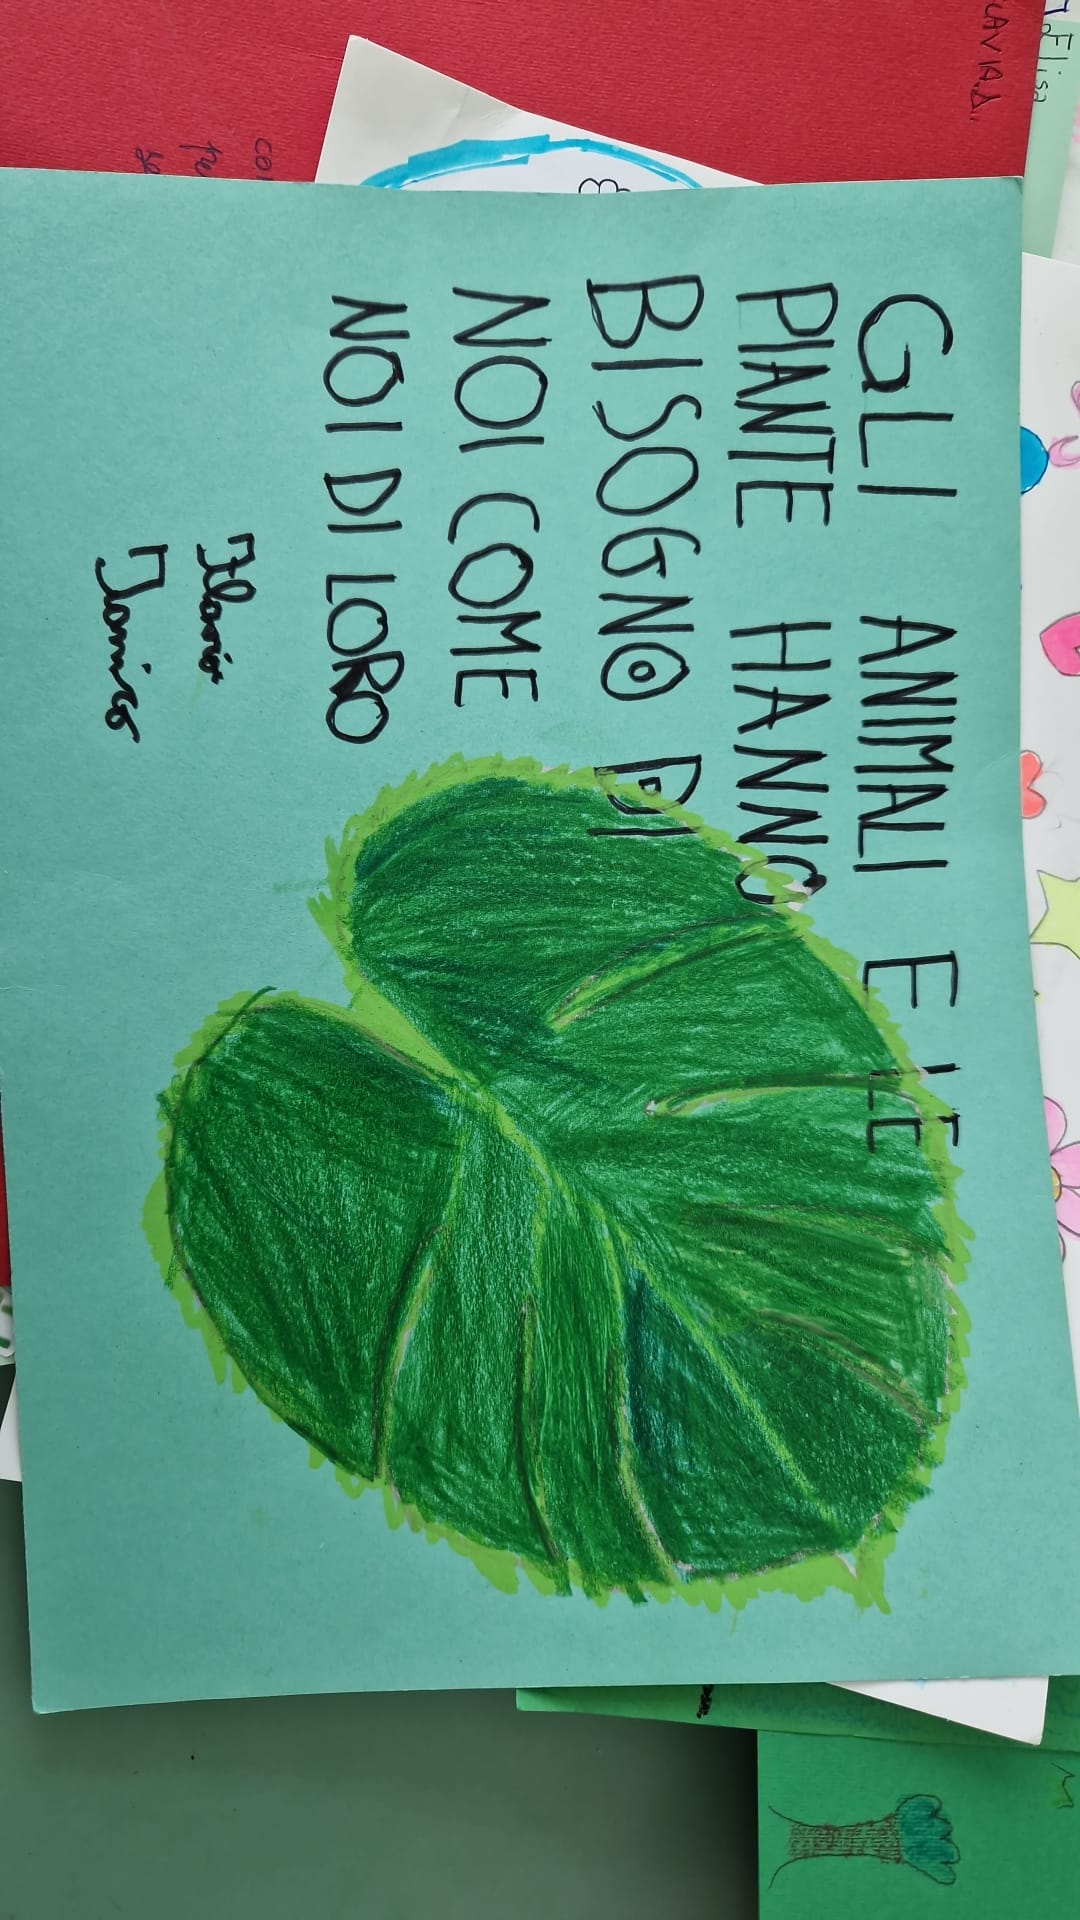 GLI ANIMALI E LE
PIANTE HANNO
BISOGNO DI
NOI COME
NOI DI LORO
Flavio
Elisa